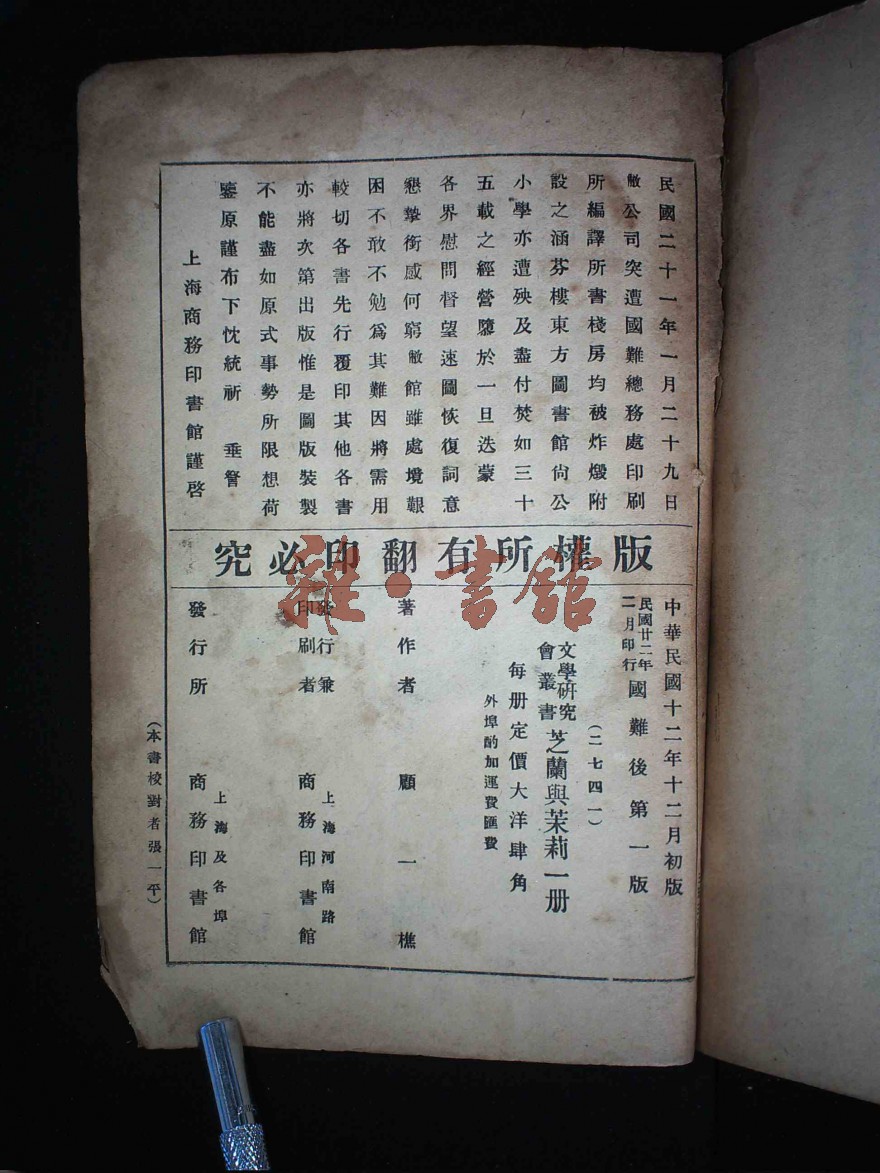 民國二十一年一月二十九日
敝公司突遭國難總務處印刷
所編譯所書棧房均被炸燬附
設之涵芬樓東方圖書館尙公
小學亦遭殃及盡付焚如三十
五載之經營隳於一旦迭蒙
各界慰問督望速圖恢復詞意
懇摯銜感何窮敝館雖處境艱
困不敢不勉爲其難因將需用
較切各書先行覆印其他各書
亦將次第出版惟是圖版裝製
不能盡如原式事勢所限想荷
鑒原謹布下忱統祈 垂詧
上海商務印書館謹啓
版權所有翻印必究
雜·書館
中華民國十二年十二月初版
民國廿二年二月印行 國難後第一版
(二七四一)
文學研究會叢書 芝蘭與茉莉一册
每册定價大洋肆角
外埠酌加運費匯費
著作者 顧一樵
發行兼印刷者 上海河南路 商務印書館
發行所 上海及各埠 商務印書館
(本書校對者張一平)